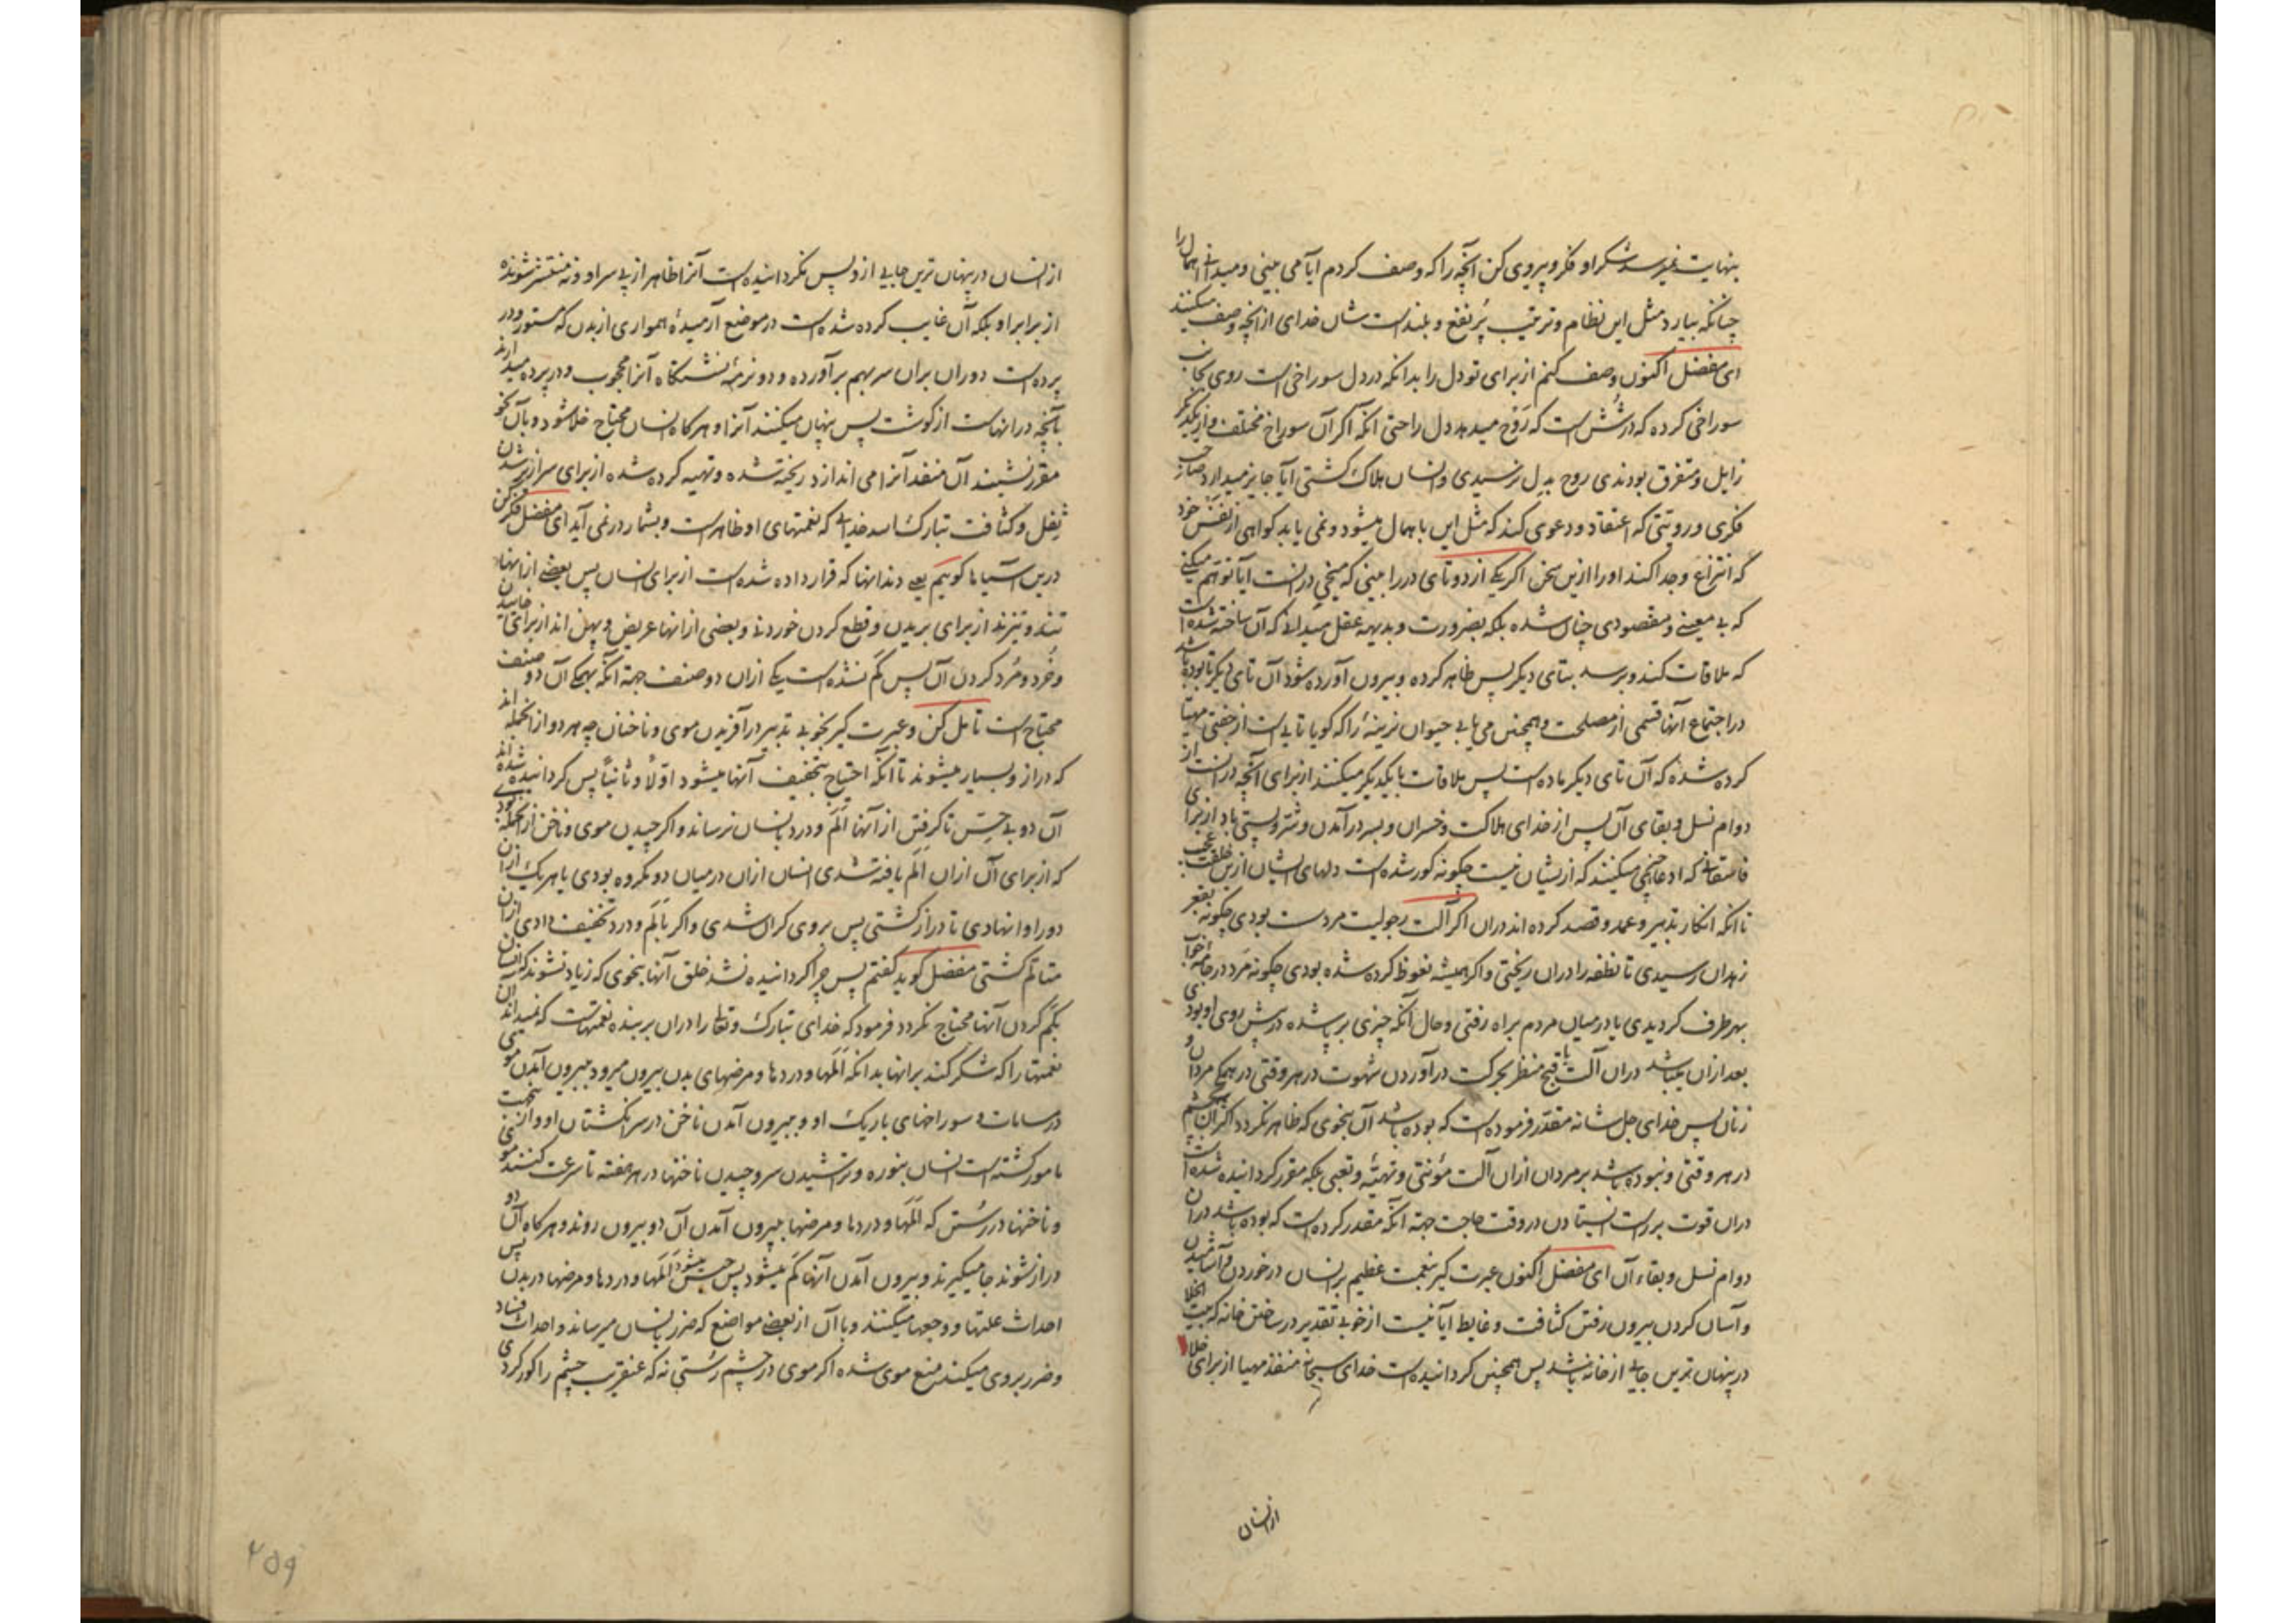 بنهایت نمیرسد شکر او فکر و پیروی کن آنچه را که وصف کردم آیا می بینی و میدانی اهمال را
چنانکه بیارد مثل این نظام و ترتیب پُر نفع و بلند است شان خدای از آنچه وصف میکنند
ای مفضل اکنون وصف کنم از برای تو دل را بدانکه در دل سوراخی است روی بجانب
سوراخی کرده که در شُش است که رَوح میدهد دل را حتی انکه اگر آن سوراخ مختلف و از یکدیگر
زایل و متفرق بودندی روح بدل نرسیدی و انسان هلاک گشتی آیا جایز میدارد صاحب
فکری و رویتی که اعتقاد و دعوی کند که مثل این باهمال میشود و نمی یابد کواهی از نفس خود
که انتزاع و جدا کند او را ازین سخن اگر یکی از دو تای در را بینی که میخی در انست آیا توهم میکنی
که بی معنی و مقصودی چنان شده بلکه بضرورت و بدیهه عقل میدانی که آن ساخته شده است
که ملاقات کند و برسد بتای دیگر پس ظاهر کرده و بیرون آورده شود آن تای دیگر تا بوده باشد
در اجتماع آنها قسمی از مصلحت و همچنین می یابی حیوان نرینهٔ را که گویا تایی است از جفتی مهیا
کرده شده که آن تای دیگر ماده است پس ملاقات با یکدیگر میکنند از برای آنچه در انست از
دوام نسل و بقای آن پس از خدای هلاکت و خسران و بسر درآمدن و شر و پستی باد از برای
که ادعا میکنند که از یشان نیست چگونه کور شده است دلهای ایشان ازین خلقت عجب
تا انکه انکار تدبیر و عمد و قصد کرده اند دران اگر آلت رجولیت مرد سست بودی چگونه بقعر
زهدان رسیدی تا نطفه را دران ریختی و اگر همیشه نعوظ کرده شده بودی چگونه مرد در جامهٔ خواب
بهر طرف گردیدی یا در میان مردم براه رفتی و حال آنکه چیزی بر پا شده در پیش روی او بودی
بعد ازان میباشد دران آلت با قبح منظر بحرکت درآوردن شهوت در هر وقتی در همگی مردان و
زنان پس خدای جل شانه مقدّر فرموده است که بوده باشد آن بنحوی که ظاهر نگردد اکثر آن بچشم
در هر وقتی و نبوده باشد بر مردان ازان آلت مؤنتی و تهیّه و تعبی بلکه مقرر گردانیده شده است
دران قوت بر راست ایستادن در وقت حاجت جهة انکه مقدر کرده است که بوده باشد دران
دوام نسل و بقاء آن ای مفضل اکنون عبرت گیر بنعمت عظیم بر انسان در خوردن و آشامیدن
و آسان کردن بیرون رفتن کثافت و غایط آیا نیست از خوبی تقدیر در ساختن خانه که بیت الخلا
در پنهان ترین جایی از خانه باشد پس همچنین گردانیده است خدای سبحانه منفذ مهیا از برای خلا
از انسان
از انسان در پنهان ترین جایی ازو پس نگردانیده است آنرا ظاهر از پی سر او و نه منتشر شونده
از برابر او بلکه آن غایب کرده شده است در موضع آرمیدهٔ همواری از بدن که مستور و در
پرده است دو ران بران سر بهم برآورده و دو نرمهٔ نشستگاه آنرا محجوب و در پرده میدارند
بآنچه در انهاست از گوشت پس پنهان میکنند آنرا و هرگاه انسان محتاج خلا شود و بآن نحو
مقرر نشیند آن منفذ آنرا می اندازد ریخته شده و تهیه کرده شده از برای سرازیر شدن
ثِفل و کثافت تبارک الله خدایی که نعمتهای او ظاهر است و بشمار در نمی آید ای مفضل فکر کن
درین آسیاها گوییم یعنی دندانها که قرار داده شده است از برای انسان پس بعضی از انها
تند و تیزند از برای بریدن و قطع کردن خوردنی و بعضی از انها عریض و پهن اند از برای خاییدن
و خُرد و مُرد کردن آن پس کَم نشده است یکی ازان دو صنف جهة آنکه بهمگی آن دو صنف
محتاج است تامل کن و عبرت گیر بخوبی تدبیر در آفریدن موی و ناخنان چه هر دو از انجمله اند
که دراز و بسیار میشوند تا آنکه احتیاج بتخفیف آنها میشود اوّلاً و ثانیاً پس گردانیده شده اند
آن دو بی حِسّ تا گرفتن از آنها اَلَم و درد بانسان نرساند و اگر چیدن موی و ناخن از انجمله بودی
که از برای آن ازان اَلَم یافته شدی انسان ازان در میان دو مکروه بودی یا هر یک ازان
دو را وا نهادی تا دراز گشتی پس بروی گران شدی و اگر بالَم و درد تخفیف دادی ازان
متالّم گشتی مفضل گوید گفتم پس چرا گردانیده نشد خلق آنها بنحوی که زیاد نشوند که انسان
بکم کردن آنها محتاج نگردد فرمود که خدای تبارک و تعالی را دران بر بنده نعمتهاست که نمیداند آن
نعمتها را که شکر کند برانها بدانکه اَلَمها و دردها و مرضهای بدن بیرون میرود ببیرون آمدن موی
در مسامات و سوراخهای باریک او و ببیرون آمدن ناخن در سر انگشتان او و ازین جهت
مامور گشته است انسان بنوره و تراشیدن سر و چیدن ناخنها در هر هفته تا سرعت کنند موی
و ناخنها در رُستن که اَلَمها و دردها و مرضها ببیرون آمدن آن دو بیرون روند و هرگاه آن دو
دراز شوند جا میگیرند و بیرون آمدن آنها کَم میشود پس حبس میشود اَلَمها و دردها و مرضها در بدن پس
احداث علتها و وجعها میکنند و با آن از بعضی مواضع که ضرر بانسان میرساند و احداث فساد
و ضرر بروی میکنند منع موی شده اگر موی در چشم رُستی نه که عنقریب چشم را کور کردی
۴۵۹